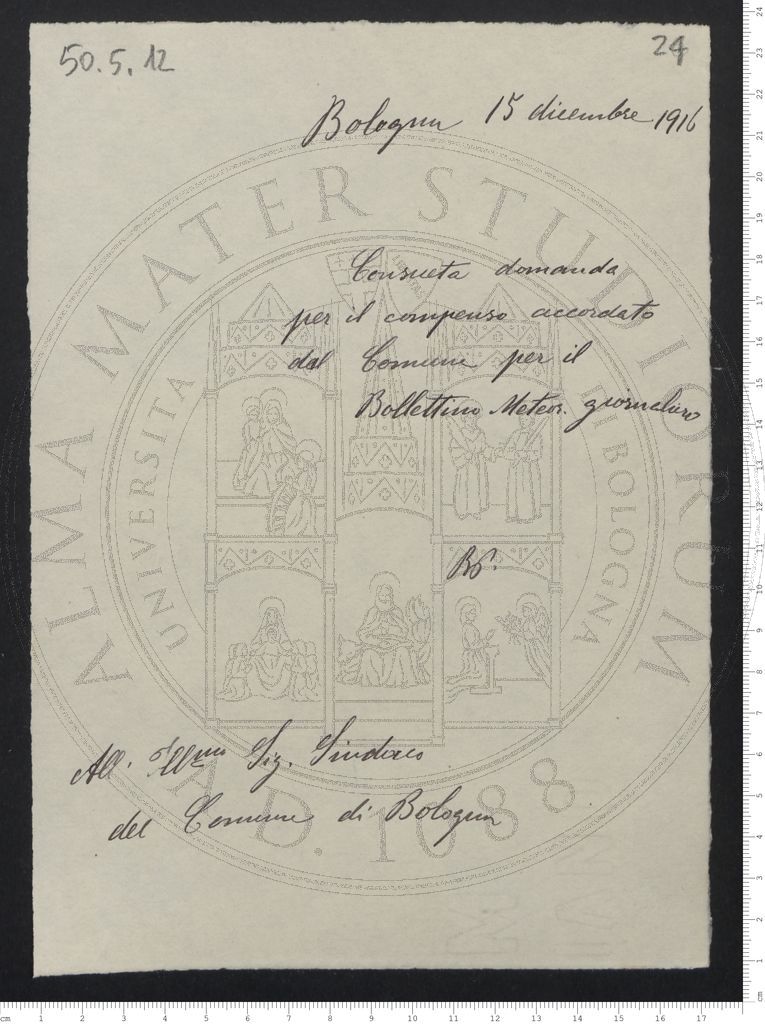 50.5.12
24
Bologna 15 dicembre 1916
Consueta domanda
per il compenso accordato
dal Comune per il
Bollettino Meteor. giornaliero
All. Ill.mo Sig. Sindaco
del Comune di Bologna
ALMA MATER STUDIORUM
UNIVERSITA DI BOLOGNA
A.D. 1088